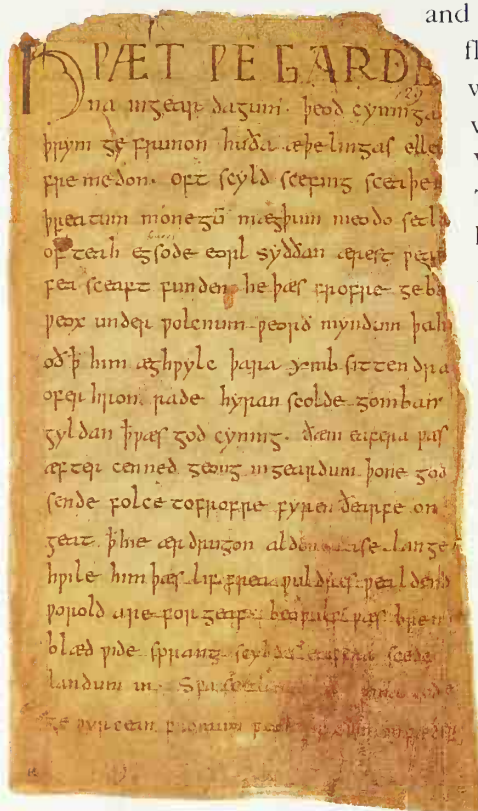 and
HǷÆT ǷE GARDE
na ingear dagum. þeod cyninga
þrym ge frunon huða æþelingas elle
fre medon. oft scyld scefing sceaþe
þreatum monegū mægþum meodo setl
of teah egsode eorl syððan ærest ƿear
fea sceaft funden he þæs frofre geb
ƿeox under ƿolcnum ƿeorð myndum þah
oð ꝥ him æghƿylc þara ymb sittendra
ofer hron rade hyran scolde gomban
gyldan ꝥ ƿæs god cyning. ðæm eafera ƿæs
æfter cenned geong ingeardum þone god
sende folce tofrofre fyren ðearfe on
geat ꝥ hie ær drugon aldor ase. lange
hƿile him þæs lif frea ƿuldres ƿealdend
ƿorold are for geaf. beoƿulf ƿæs brem
blæd ƿide sprang scyldes eafera scede
landum in. Sƿa gode
ge ƿyrcean fromum